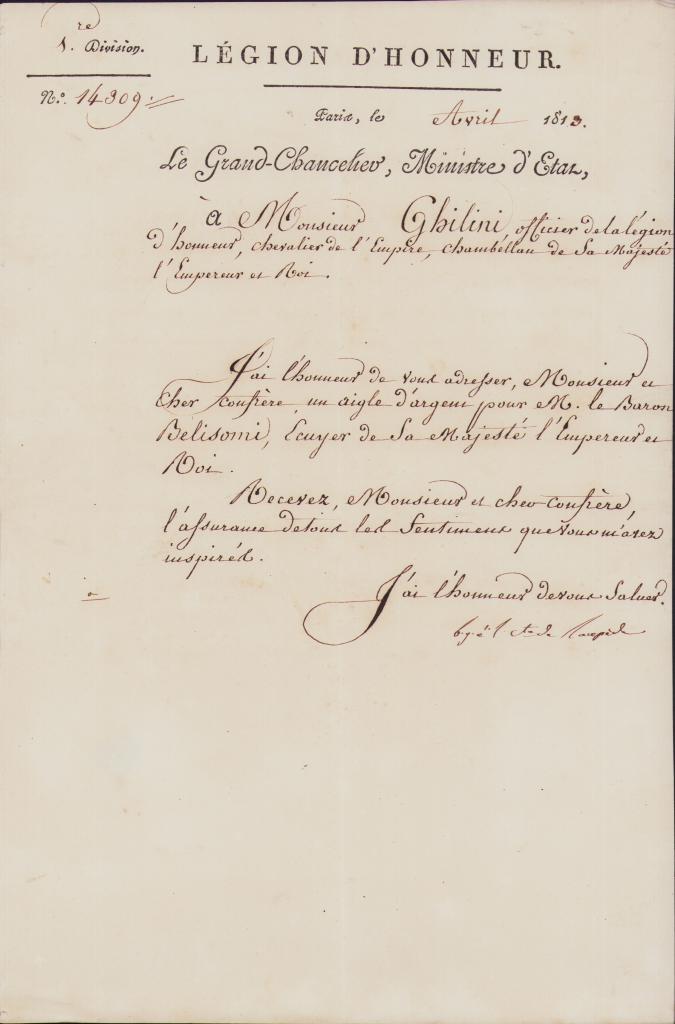 1.re Division.
LÉGION D'HONNEUR.
N.º 14309.
Paris, le Avril 1813.
Le Grand-Chancelier, Ministre d'Etat,
à Monsieur Ghilini, officier de la légion
d'honneur, chevalier de l'Empire, chambellan de Sa Majesté
l'Empereur et Roi.
J'ai l'honneur de vous adresser, Monsieur et
cher confrère, un aigle d'argent pour M. le Baron
Belisomi, Ecuyer de Sa Majesté l'Empereur et
Roi.
Recevez, Monsieur et cher confrère,
l'assurance de tous les sentimens que vous m'avez
inspirés.
J'ai l'honneur de vous saluer.